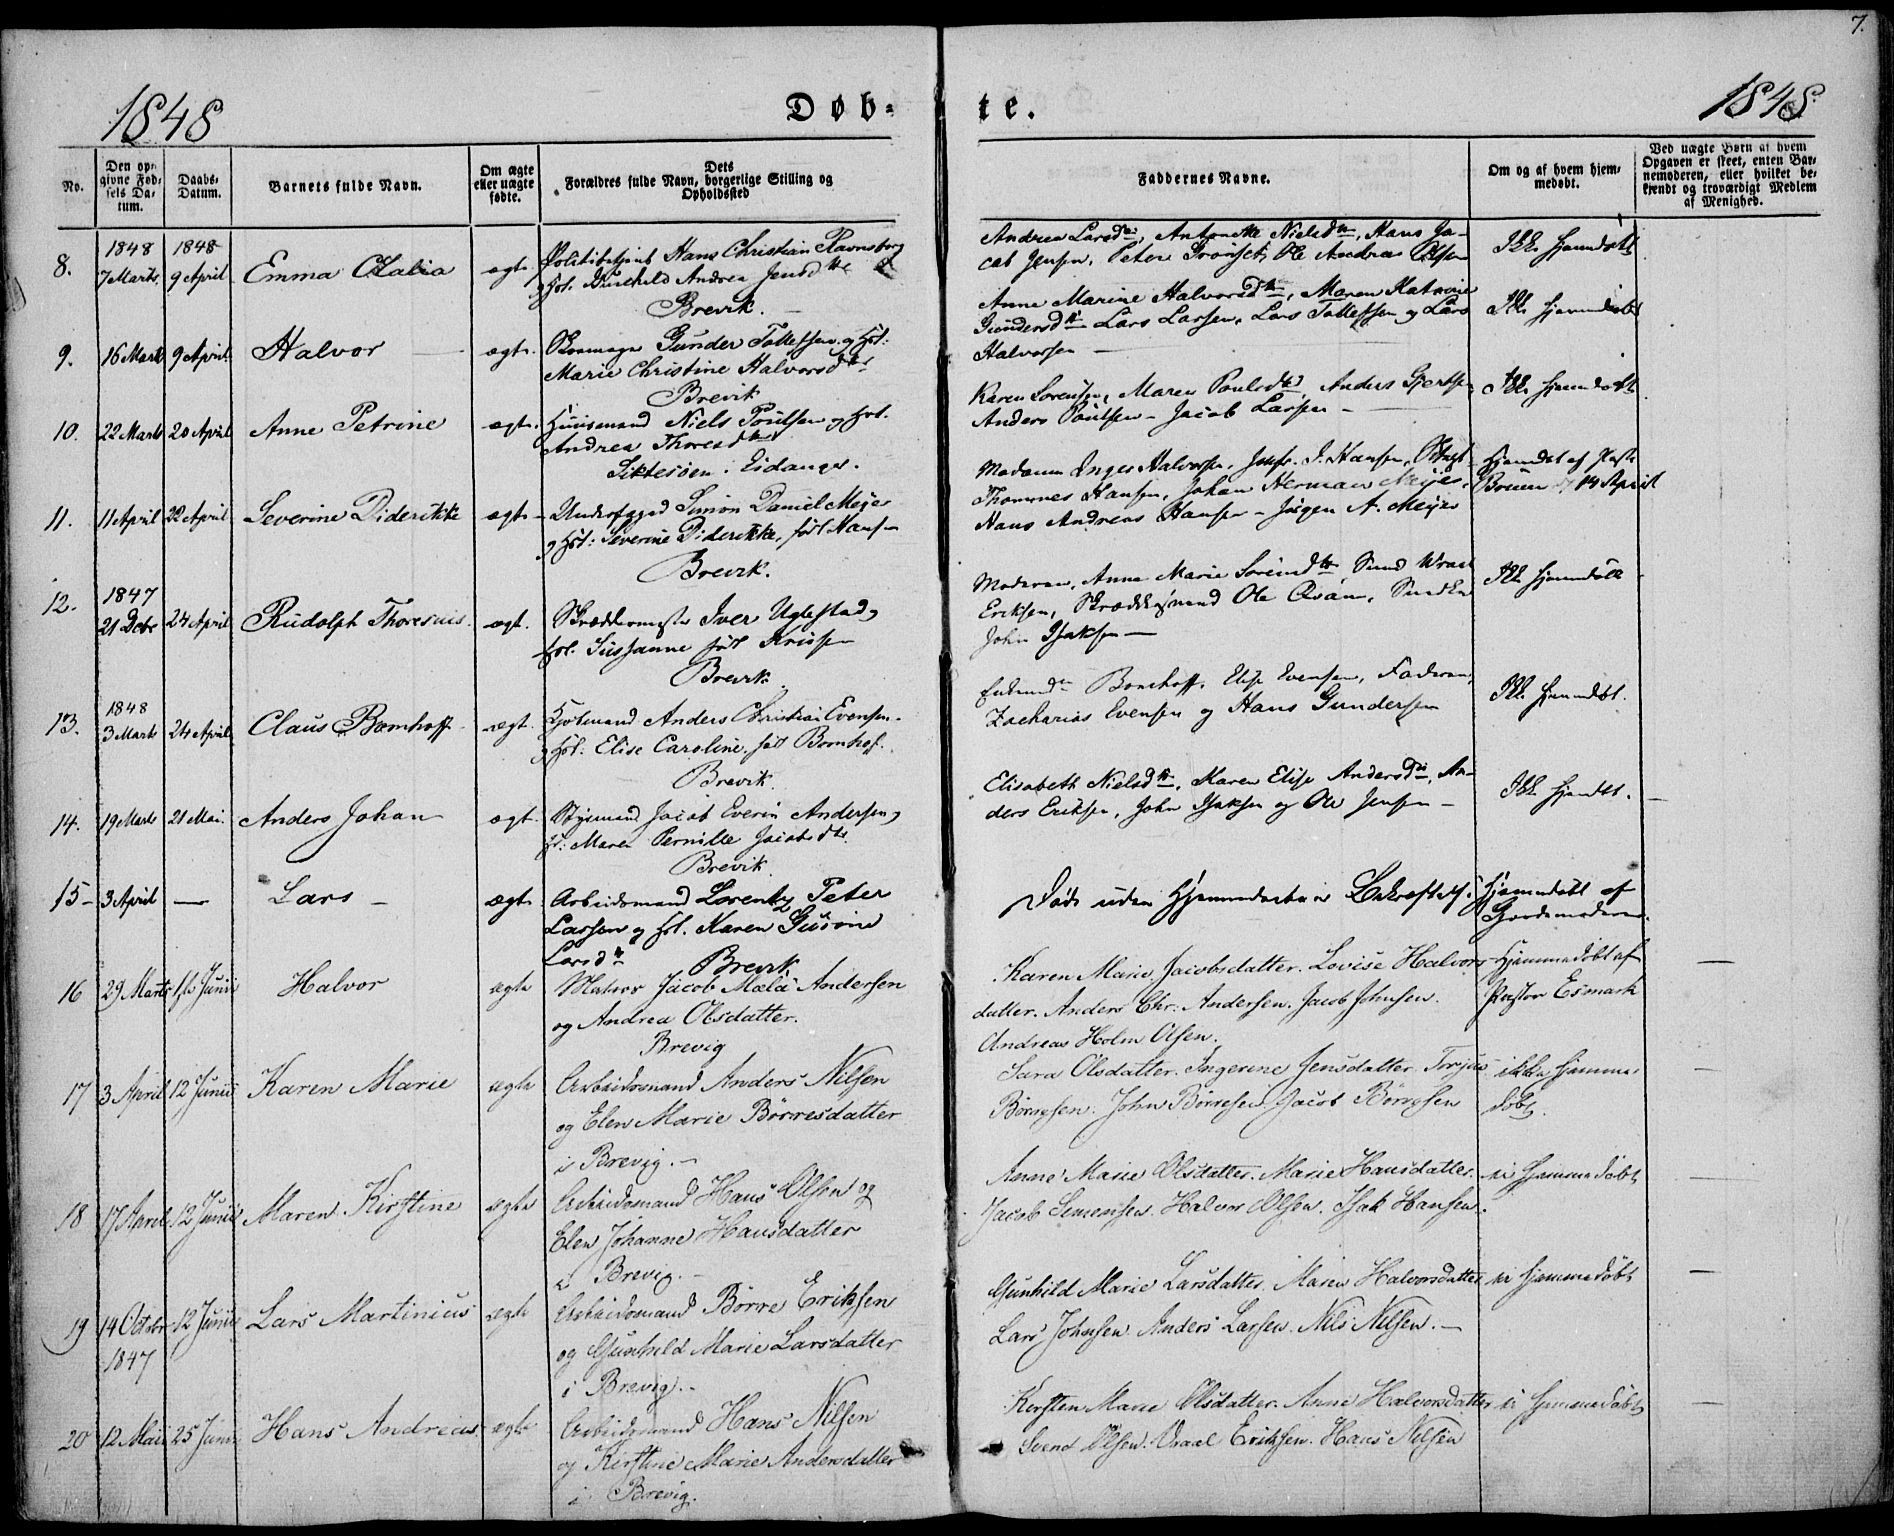 7.
1848
Døb-
te.
1848.
No.
Den op-
givne Fød-
sels Da-
tum.
Daabs-
Datum.
Barnets fulde Navn.
Om ægte
eller uægte
fødte.
Dets
Forældres fulde Navn, borgerlige Stilling og
Opholdssted
Faddernes Navne.
Om og af hvem hjem-
medøbt.
Ved uægte Børn af hvem
Opgaven er skeet, enten Bar-
nemoderen, eller hvilket be-
kjendt og troværdigt Medlem
af Menighed.
8.
1848
7 Marts
1848
9 April
Emma
ægte
Hans Christian Ravnsborg
og Hst. Gunhild Andrea Jensdtr
Brevik.
Andrea Larsdtr, Antonette Nielsdtr, Hans Ja-
cob Jensen, Peter Ole Andreas Olsen
Ikke hjemdøbt
9.
16 Marts
9 April
Halvor
ægte.
Gunder Tollefsen og Hst:
Marie Christine Halvorsdtr
Brevik
Anne Marine Halvorsdtr, Maren Katrine
Gundersdtr Lars Larsen, Lars Tollefsen og Lars
Halvorsen
Ikke hjemmedøbt
10.
22 Marts
20 April
Anne Petrine
ægte.
Huusmand Niels Poulsen og Hst.
Andrea Thoresdtr
i Eidanger.
Karen Sørensen, Maren Poulsdtr, Anders Gjertsen
Anders Poulsen - Jacob Larsen -
Ikke hjemdøbt
11.
11 April
22 April
Severine Diderikke
ægte
Simon Daniel Meyer
og Hst: Severine Diderikke, født Hansen
Brevik.
Madame Inger Halvorsen, J. Hansen,
Thommes Hansen, Johan Herman Meyer,
Hans Andreas Hansen - Jørgen A. Meyer
Hjemdøbt af
14 April
12.
1847
21 Decbr
24 April
Rudolph Thoresius.
ægt.
Iver Uglestad og
Hst. Susanne født
Brevik
Moderen, Anne Marie
Eriksen, Ole
John Isaksen -
Ikke hjemdøbt
13.
1848
3 Marts
24 April
Claus Bomhoff
ægt.
Anders Christian Evensen
og Hst: Elise Caroline, født Bomhof.
Brevik.
Bomhoff, Elise Evensen, Faderen,
Zacharias Evensen og Hans Gundersen
Ikke hjemdøbt.
14.
19 Marts
21 Mai.
Anders Johan
ægt.
Styrmand Jacob Everin Andersen og
H: Maren Pernille Jacobsdtr.
Brevik
Elisabeth Nielsdtr, Karen Elise Andersdtr, An-
ders Eriksen, John Isaksen og Ole Jensen -
Ikke hjemdøbt.
15 -
3 April
—
Lars -
ægte
Arbeidsmand Lorentz Peter
Larsen og Hst. Karen
Larsdtr Brevik
Døde uden Hjemmedaabens Bekræftelse.
Hjemmedøbt af
Gjordemoderen.
16
29 Marts
Junii
Halvor
ægte
Matros Jacob Andersen
og Andrea Olsdatter.
Brevig
Karen Marie Jacobsdatter. Lovise Halvors-
datter. Anders Chr. Andersen. Jacob Johnsen.
Andreas Holm Olsen.
Hjemmedøbt af
Pastor Esmark
17
3 April
12 Junii
Karen Marie
ægte
Arbeidsmand Anders Nilsen
og Elen Marie Børresdatter
i Brevig. -
Sara Olsdatter. Ingerine Jensdatter. Terjus
Børresen. John Børresen. Jacob Børresen
ikke hjemme-
døbt.
18
17 April
12 Junii
Maren Kirstine
ægte
Arbeidsmand Hans Olsen og
Elen Johanne Hansdatter
i Brevig. -
Anne Marie Olsdatter. Marie Hansdatter.
Jacob Simensen. Halvor Olsen. Isak Hansen.
ei hjemmedøbt
19
14 Octobr
1847
12 Junii
Lars Martinius
ægte
Arbeidsmand Børre Eriksen
og Gunhild Marie Larsdatter
i Brevig. -
Gunhild Marie Larsdatter. Maren Halvorsdatter
Lars Johnsen. Anders Larsen. Nils Nilsen. -
ei hjemmedøbt
20
12 Mai
25 Junii
Hans Andreas
ægte
Arbeidsmand Hans Nilsen
og Kirstine Marie Andersdatter
i Brevig.
Kirsten Marie Olsdatter. Anne Halvorsdatter
Svend Olsen. Vraal Eriksen. Hans Nilsen
ei hjemmedøbt